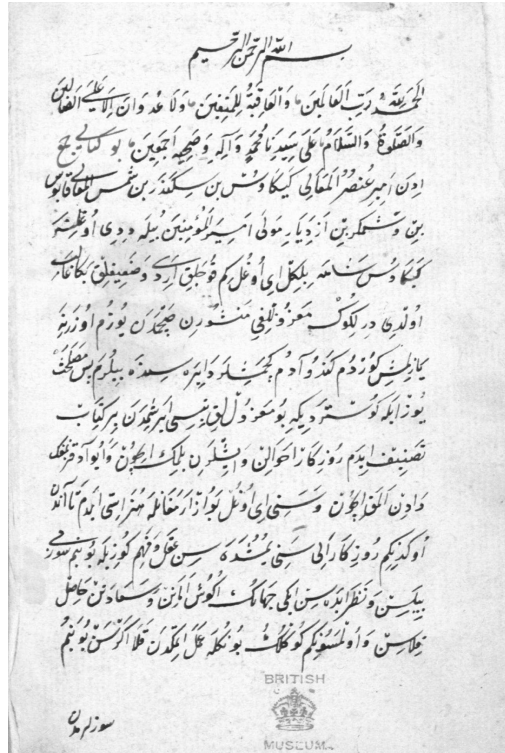 بسم الله الرحمن الرحيم
الحمد لله رب العالمين والعاقبة للمتقين ولا عدوان الا على الظالمين
والصلوة والسلام على سيدنا محمد وآله وصحبه اجمعين بو كتابى جمع
ادن امير عنصر المعالى كيكاوس بن سكندر بن شمس المعالى قابوس
بن وشمكير بن ازديار مولى امير المؤمنين بيله ديدى اوغلنه
كيكاوس بلكل اى اوغل كم قوجلق اردى وضعيفلق بكا غالب
اولدى ديرلكوك معزوللغى منشورن صچمدن يوزم اوزرنه
يازلمش كوردم كندو آدوم كچمشلر دايره سنده بيلورم بس مصلحت
يوز ايله كوستردى كه بو معزوللق اير غمدن بر كتاب
تصنيف ايدم روزكار احوالن وايشلرن بلمك ايچون وايو آد
دادن المق ايچون وسنى اى اوغل بو ازار هنر اسى ايدم تا آندن
اوكدنكم روزكار الى سنى يمشده سن عقل وفهم كوزيله بو بنم سوزمى
بيلسن ونظر ايده سن ايكى جهانك اكوش آدن وسعادتن حاصل
قلاسن واولمسونكم كوكلك بونكله عمل اتمكدن قلا اكر سن بو بنم
سوزلرمدن
BRITISH
MUSEUM